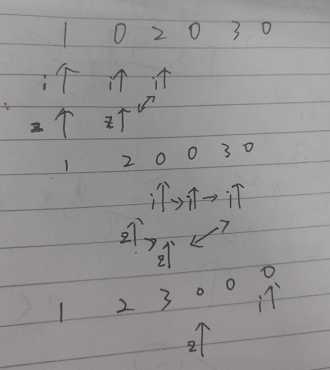 1 0 2 0 3 0
i↑ i↑ i↑
z↑ z↑ ↙↗
1 2 0 0 3 0
i↑ → i↑ → i↑
z↑ → z↑ ↙↗
1 2 3 0 0 0
i↑
z↑